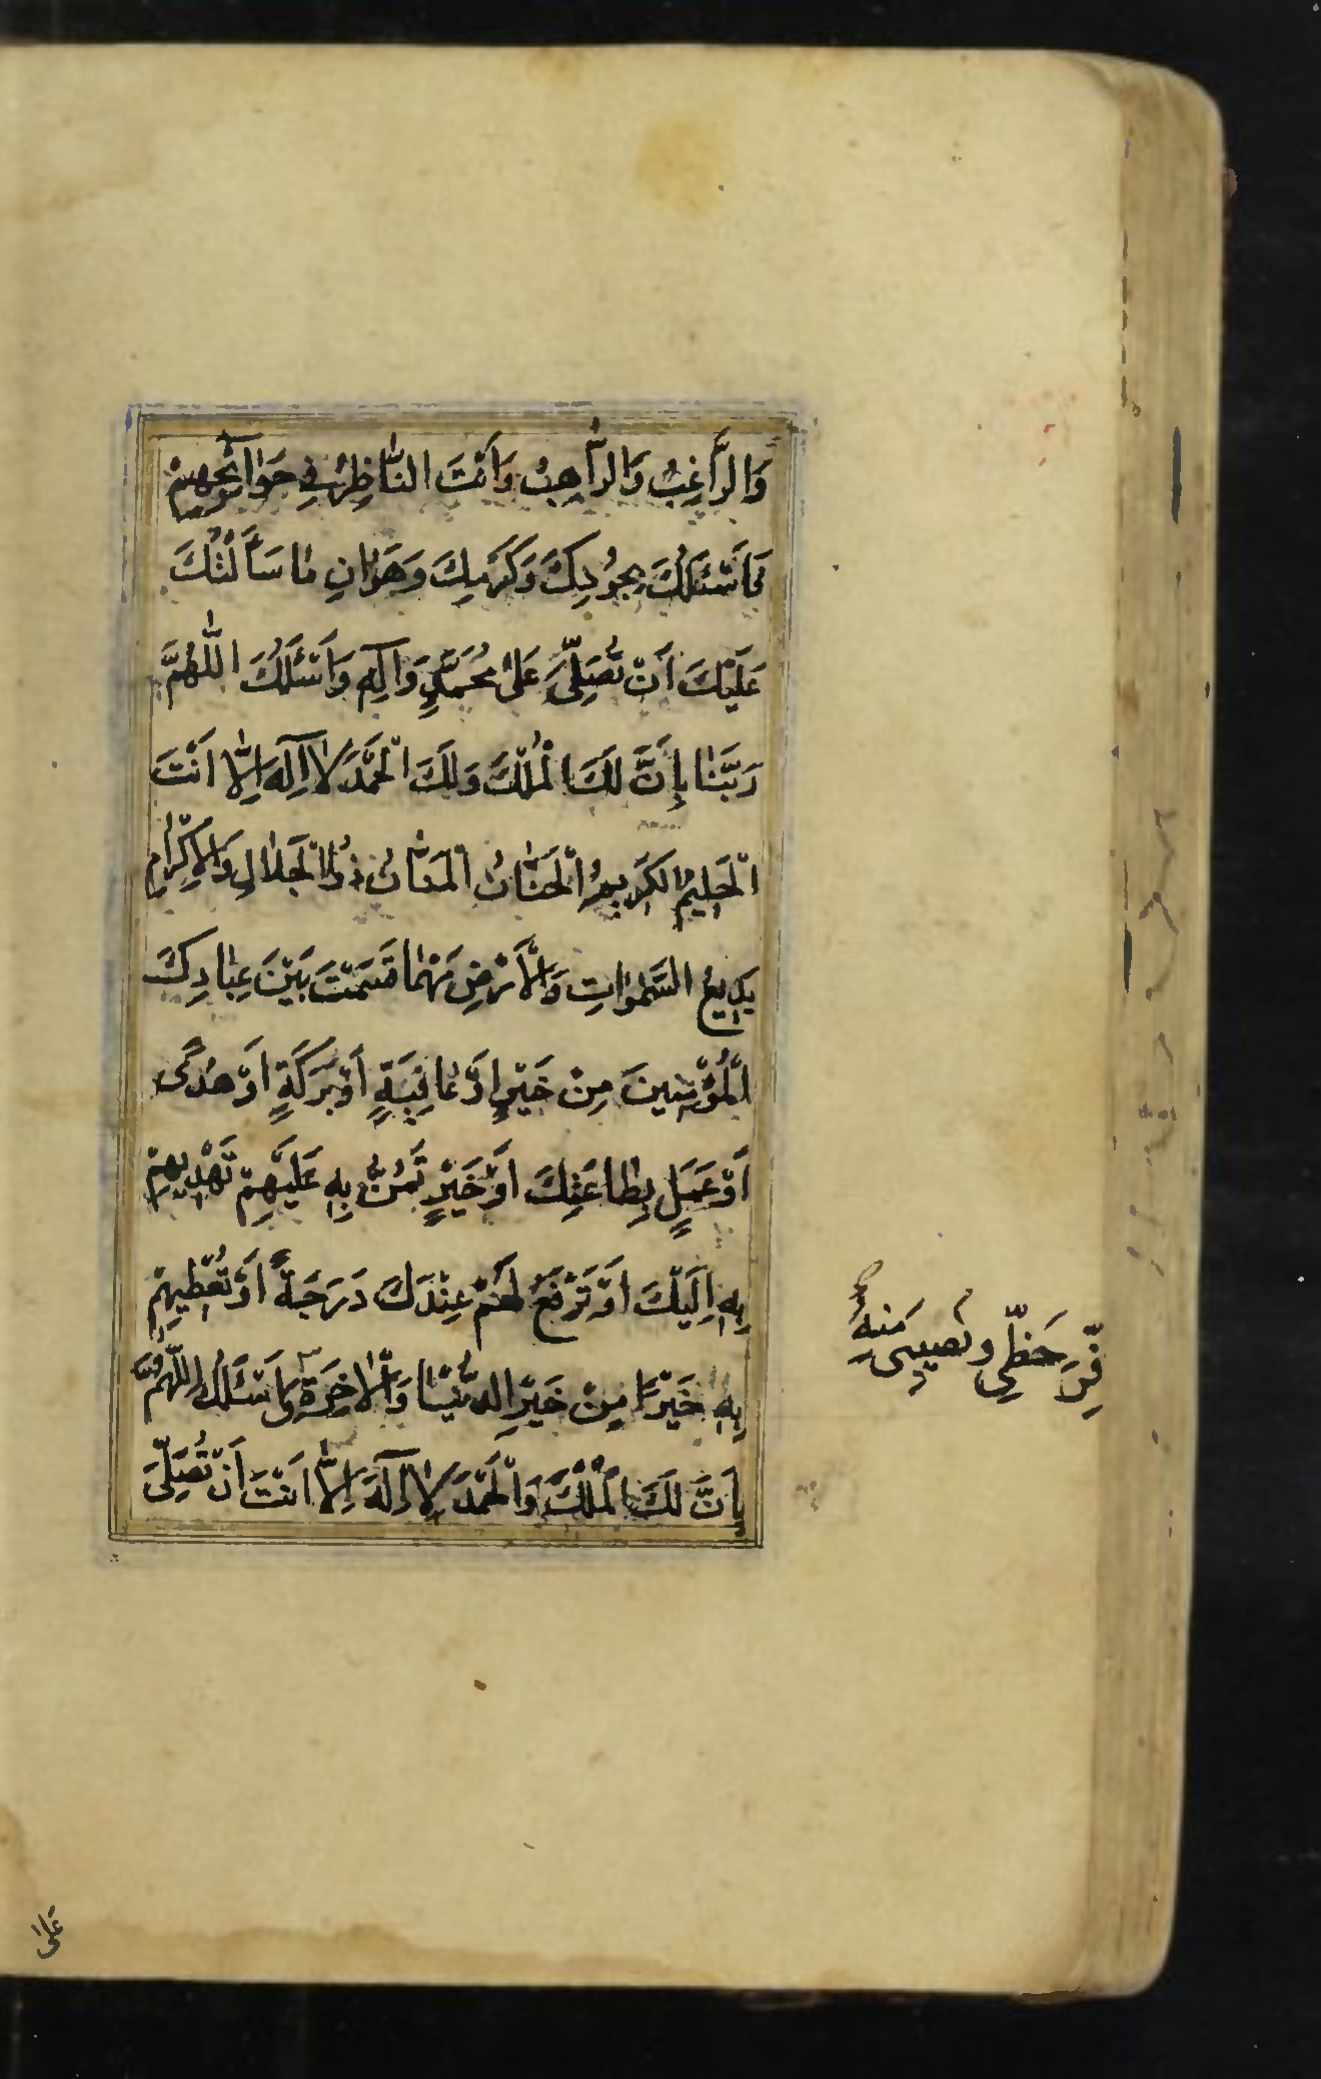 وَالرَّاغِبُ وَالرَّاهِبُ وَاَنْتَ النَّاظِرُ فِی حَوَآئِجِهِمْ
فَاَسْئَلُكَ بِجُودِكَ وَكَرَمِكَ وَهَوَانِ مَا سَأَلْتُكَ
عَلَيْكَ اَنْ تُصَلِّیَ عَلٰی مُحَمَّدٍ وَآلِهِ وَاَسْئَلُكَ اللّٰهُمَّ
رَبَّنَا بِاَنَّ لَكَ الْمُلْكَ وَلَكَ الْحَمْدَ لَا اِلٰهَ اِلَّا اَنْتَ
الْحَلِيمُ الْكَرِيمُ الْحَنَّانُ الْمَنَّانُ ذُو الْجَلَالِ وَالْاِكْرَامِ
بَدِيعُ السَّمٰوَاتِ وَالْاَرْضِ مَهْمَا قَسَمْتَ بَيْنَ عِبَادِكَ
الْمُؤْمِنِينَ مِنْ خَيْرٍ اَوْ عَافِيَةٍ اَوْ بَرَكَةٍ اَوْ هُدًی
اَوْ عَمَلٍ بِطَاعَتِكَ اَوْ خَيْرٍ تَمُنُّ بِهِ عَلَيْهِمْ تَهْدِيهِمْ
بِهِ اِلَيْكَ اَوْ تَرْفَعُ لَهُمْ عِنْدَكَ دَرَجَةً اَوْ تُعْطِيهِمْ
بِهِ خَيْرًا مِنْ خَيْرِ الدُّنْيَا وَالْاٰخِرَةِ وَاَسْئَلُكَ اللّٰهُمَّ
بِاَنَّ لَكَ الْمُلْكَ وَالْحَمْدَ لَا اِلٰهَ اِلَّا اَنْتَ اَنْ تُصَلِّیَ
حَظِّی وَنَصِيبِی مِنْهُ
عَلٰی